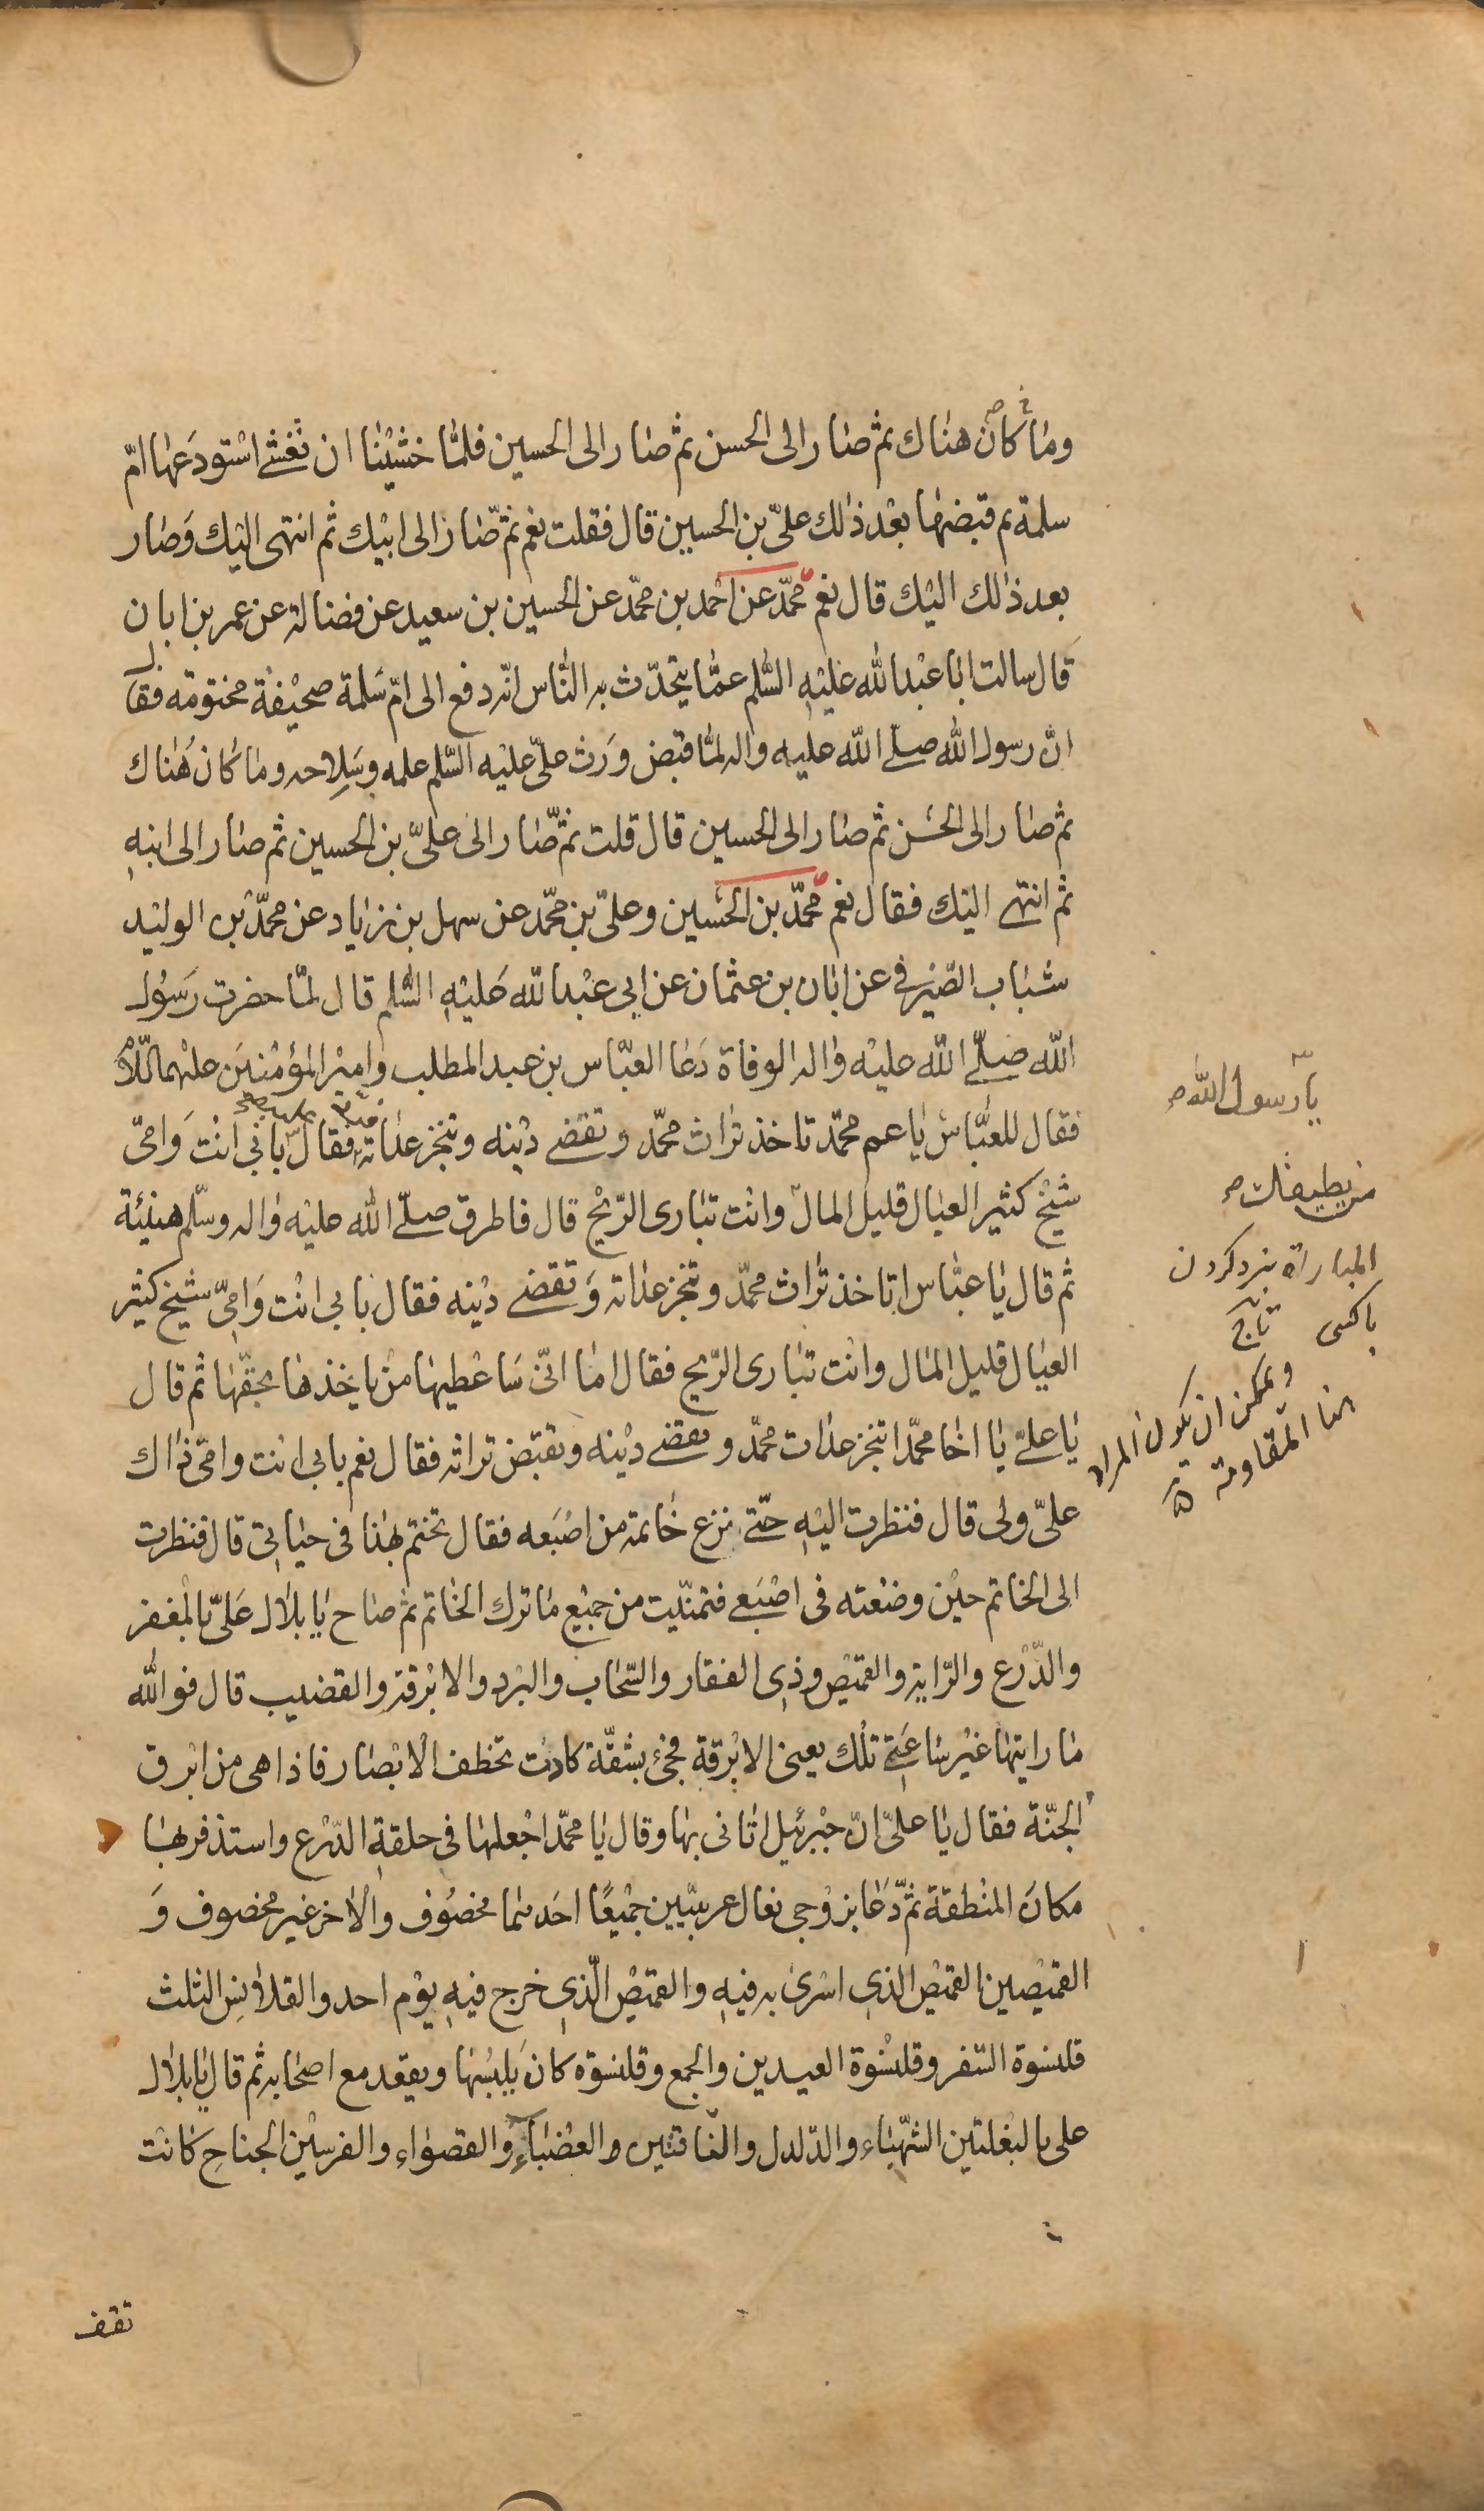 وما كان هناك ثم صار الى الحسن ثم صار الى الحسين فلمّا خشينا ان نغشى استودعها امّ
سلمة ثم قبضها بعد ذلك علىّ بن الحسين قال فقلت نعم ثمّ صار الى ابيك ثم انتهى اليك وصار
بعد ذلك اليك قال نعم محمّد عن احمد بن محمّد عن الحسين بن سعيد عن فضالة عن عمر بن ابان
قال سالت ابا عبد الله عليه السّلم عمّا يتحدّث به النّاس انّه دفع الى امّ سلمة صحيفة مختومة فقال
انّ رسول الله صلّى الله عليه واله لمّا قبض ورث علىّ عليه السّلم علمه وسلاحه وما كان هناك
ثم صار الى الحسن ثم صار الى الحسين قال قلت ثمّ صار الى علىّ بن الحسين ثم صار الى ابنه
ثم انتهى اليك فقال نعم محمّد بن الحسين وعلىّ بن محمّد عن سهل بن زياد عن محمّد بن الوليد
شباب الصّيرفى عن ابان بن عثمان عن ابى عبد الله عليه السّلم قال لمّا حضرت رسول
الله صلّى الله عليه واله الوفاة دعا العبّاس بن عبد المطلب وامير المؤمنين عليهما السّلام
فقال للعبّاس يا عم محمّد تاخذ تراث محمّد وتقضى دينه وتنجز عداته فقال بابى انت وامّى
شيخ كثير العيال قليل المال وانت تبارى الرّيح قال فاطرق صلّى الله عليه واله وسلّم هنيئة
ثم قال يا عبّاس اتاخذ تراث محمّد وتنجز عداته وتقضى دينه فقال بابى انت وامّى شيخ كثير
العيال قليل المال وانت تبارى الرّيح فقال اما انّى ساعطيها من ياخذها بحقّها ثم قال
يا علىّ يا اخا محمّد اتنجز عدات محمّد وتقضى دينه وتقبض تراثه فقال نعم بابى انت وامّى ذاك
علىّ ولى قال فنظرت اليه حتّى نزع خاتمه من اصبعه فقال تختّم بهذا فى حياتى قال فنظرت
الى الخاتم حين وضعته فى اصبعى فتمنّيت من جميع ما ترك الخاتم ثم صاح يا بلال علىّ بالمغفر
والدّرع والرّاية والقميص وذى الفقار والسّحاب والبرد والابرقة والقضيب قال فو الله
ما رايتها غير ساعتى تلك يعنى الابرقة فجئ بشقّة كادت تخطف الابصار فاذا هى من ابرق
الجنّة فقال يا علىّ انّ جبرئيل اتانى بها وقال يا محمّد اجعلها فى حلقة الدّرع واستذفر بها
مكان المنطقة ثمّ دعا بزوجى نعال عربيّين جميعًا احدهما مخصوف والاخر غير مخصوف و
القميصين القميص الذى اسرى به فيه والقميص الّذى خرج فيه يوم احد والقلانس الثلث
قلنسوة السّفر وقلنسوة العيدين والجمع وقلنسوة كان يلبسها ويقعد مع اصحابه ثم قال يا بلال
على بالبغلتين الشّهباء والدّلدل والنّاقتين والعضباء والقصواء والفرسين الجناح كانت
تقف
يا رسول الله
من يطيقك
المباراة نبرد كردن
با كسى تاج
ويمكن ان يكون المراد
هنا المقاومة